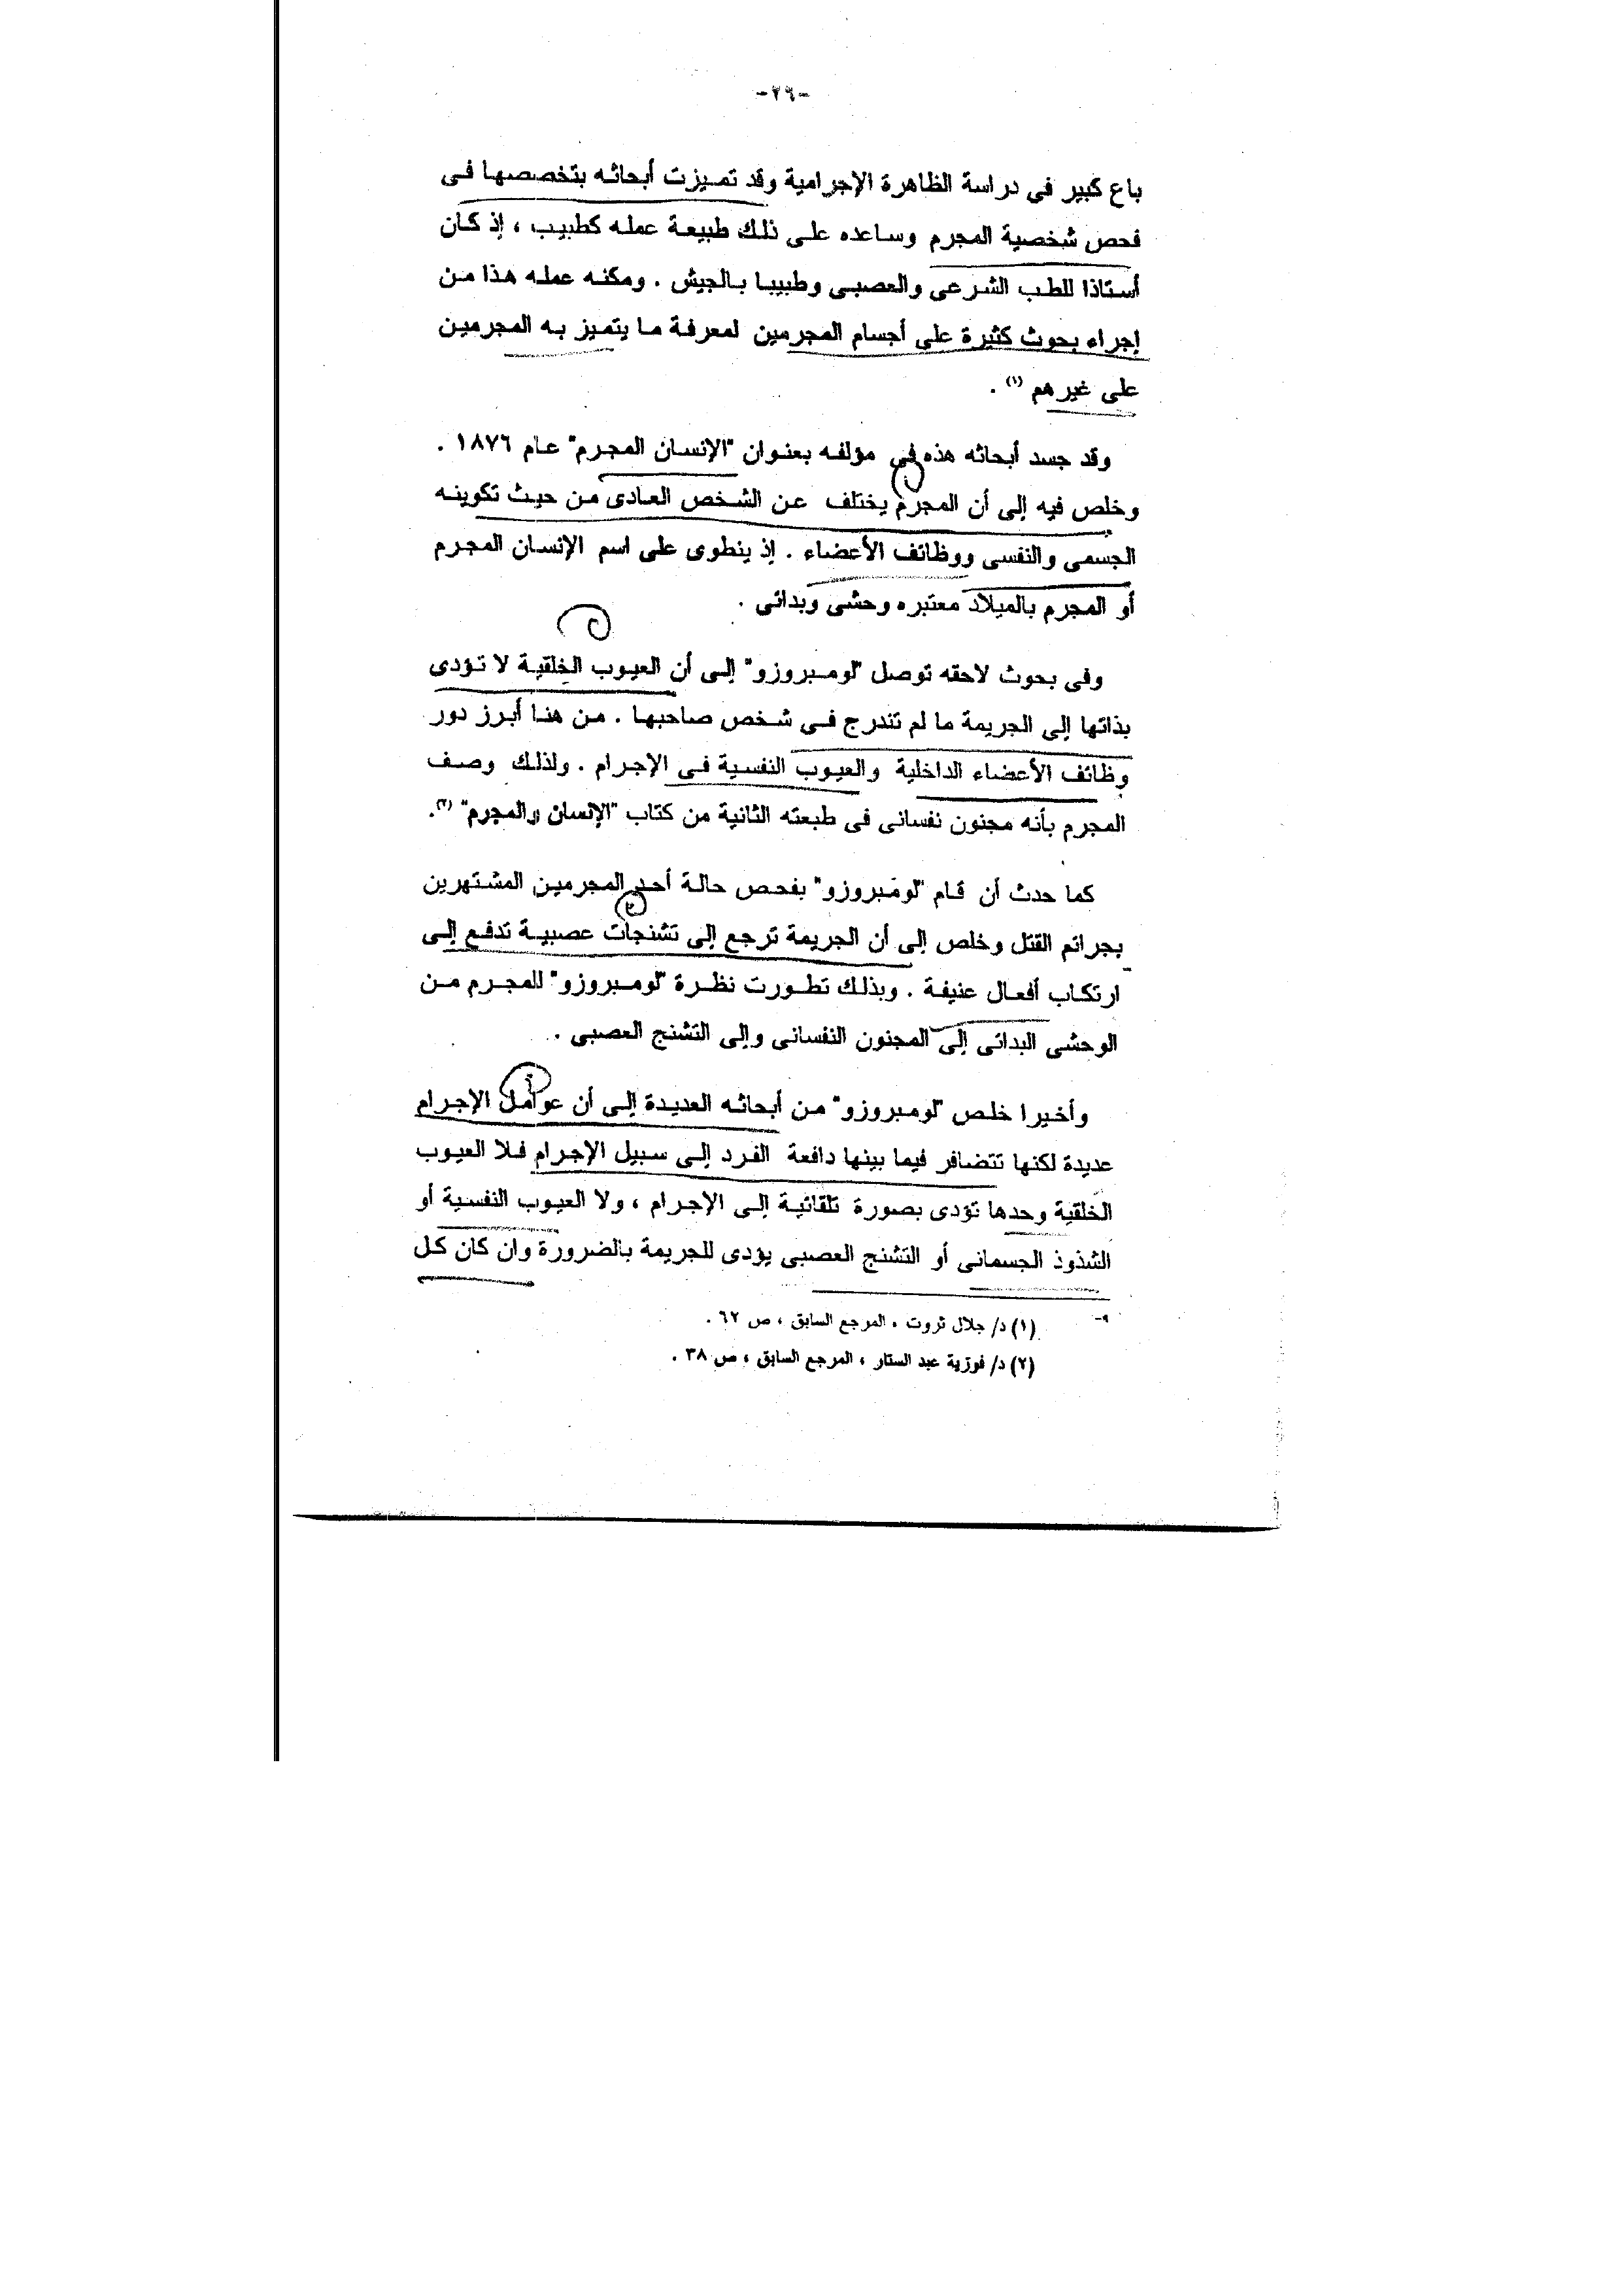 -٢٦-
باع كبير فى دراسة الظاهرة الإجرامية وقد تميزت أبحاثه بتخصصها فى
فحص شخصية المجرم وساعده على ذلك طبيعة عمله كطبيب ، إذ كان
أستاذا للطب الشرعى والعصبى وطبيبا بالجيش . ومكنه عمله هذا من
إجراء بحوث كثيرة على أجسام المجرمين لمعرفة ما يتميز به المجرمين
على غيرهم (١) .
وقد جسد أبحاثه هذه فى مؤلفه بعنوان "الإنسان المجرم" عام ١٨٧٦ .
وخلص فيه إلى أن المجرم يختلف عن الشخص العادى من حيث تكوينه
الجسمى والنفسى ووظائف الأعضاء . إذ ينطوى على اسم الإنسان المجرم
أو المجرم بالميلاد معتبره وحشى وبدائى .
وفى بحوث لاحقه توصل "لومبروزو" إلى أن العيوب الخلقية لا تؤدى
بذاتها إلى الجريمة ما لم تندرج فى شخص صاحبها . من هنا أبرز دور
وظائف الأعضاء الداخلية والعيوب النفسية فى الإجرام . ولذلك وصف
المجرم بأنه مجنون نفسانى فى طبعته الثانية من كتاب "الإنسان والمجرم" (٢).
كما حدث أن قام "لومبروزو" بفحص حالة أحد المجرمين المشتهرين
بجرائم القتل وخلص إلى أن الجريمة ترجع إلى تشنجات عصبية تدفع إلى
ارتكاب أفعال عنيفة . وبذلك تطورت نظرة "لومبروزو" للمجرم من
الوحشى البدائى إلى المجنون النفسانى وإلى التشنج العصبى .
وأخيرا خلص "لومبروزو" من أبحاثه العديدة إلى أن عوامل الإجرام
عديدة لكنها تتضافر فيما بينها دافعة الفرد إلى سبيل الإجرام فلا العيوب
الخلقية وحدها تؤدى بصورة تلقائية إلى الإجرام ، ولا العيوب النفسية أو
الشذوذ الجسمانى أو التشنج العصبى يؤدى للجريمة بالضرورة وان كان كل
(١) د/ جلال ثروت ، المرجع السابق ، ص ٦٢ .
(٢) د/ فوزية عبد الستار ، المرجع السابق ، ص ٣٨ .